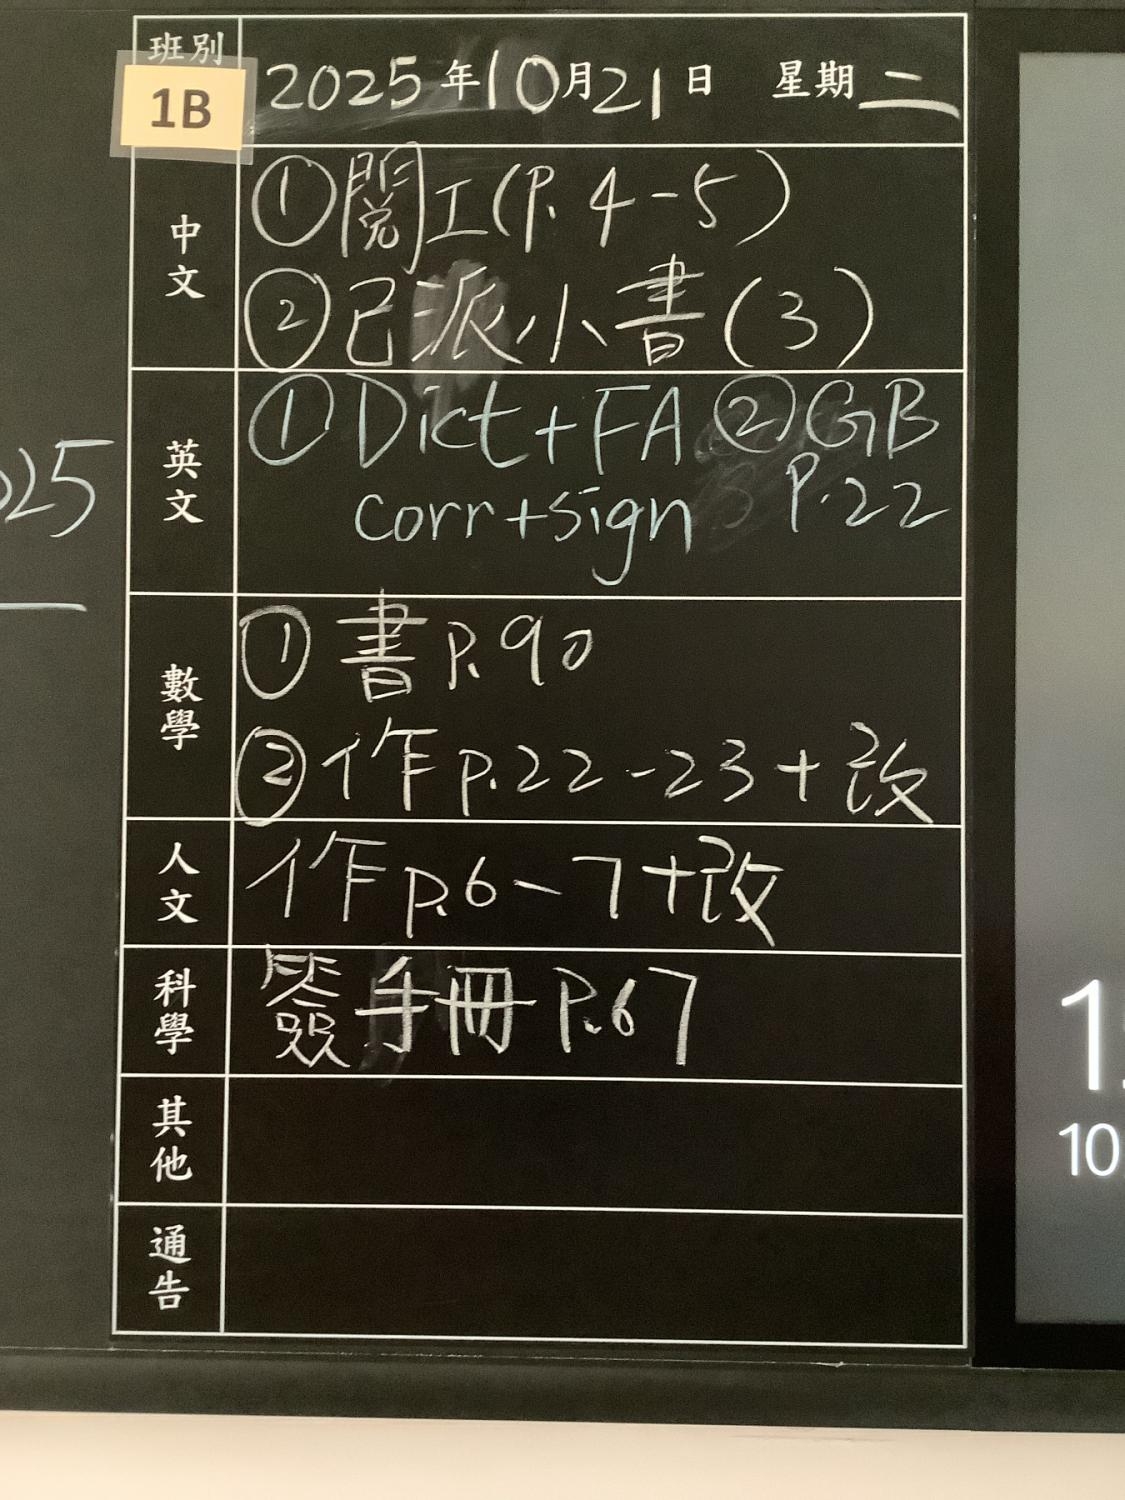 班別
1B
2025年10月21日 星期二
中文
①閱工(P.4-5)
②已派小書(3)
英文
①Dict+FA ②GB
corr+sign P.22
25
數學
①書P.90
②作p.22-23+改
人文
作p.6-7+改
科學
簽手冊P.67
其他
通告
10